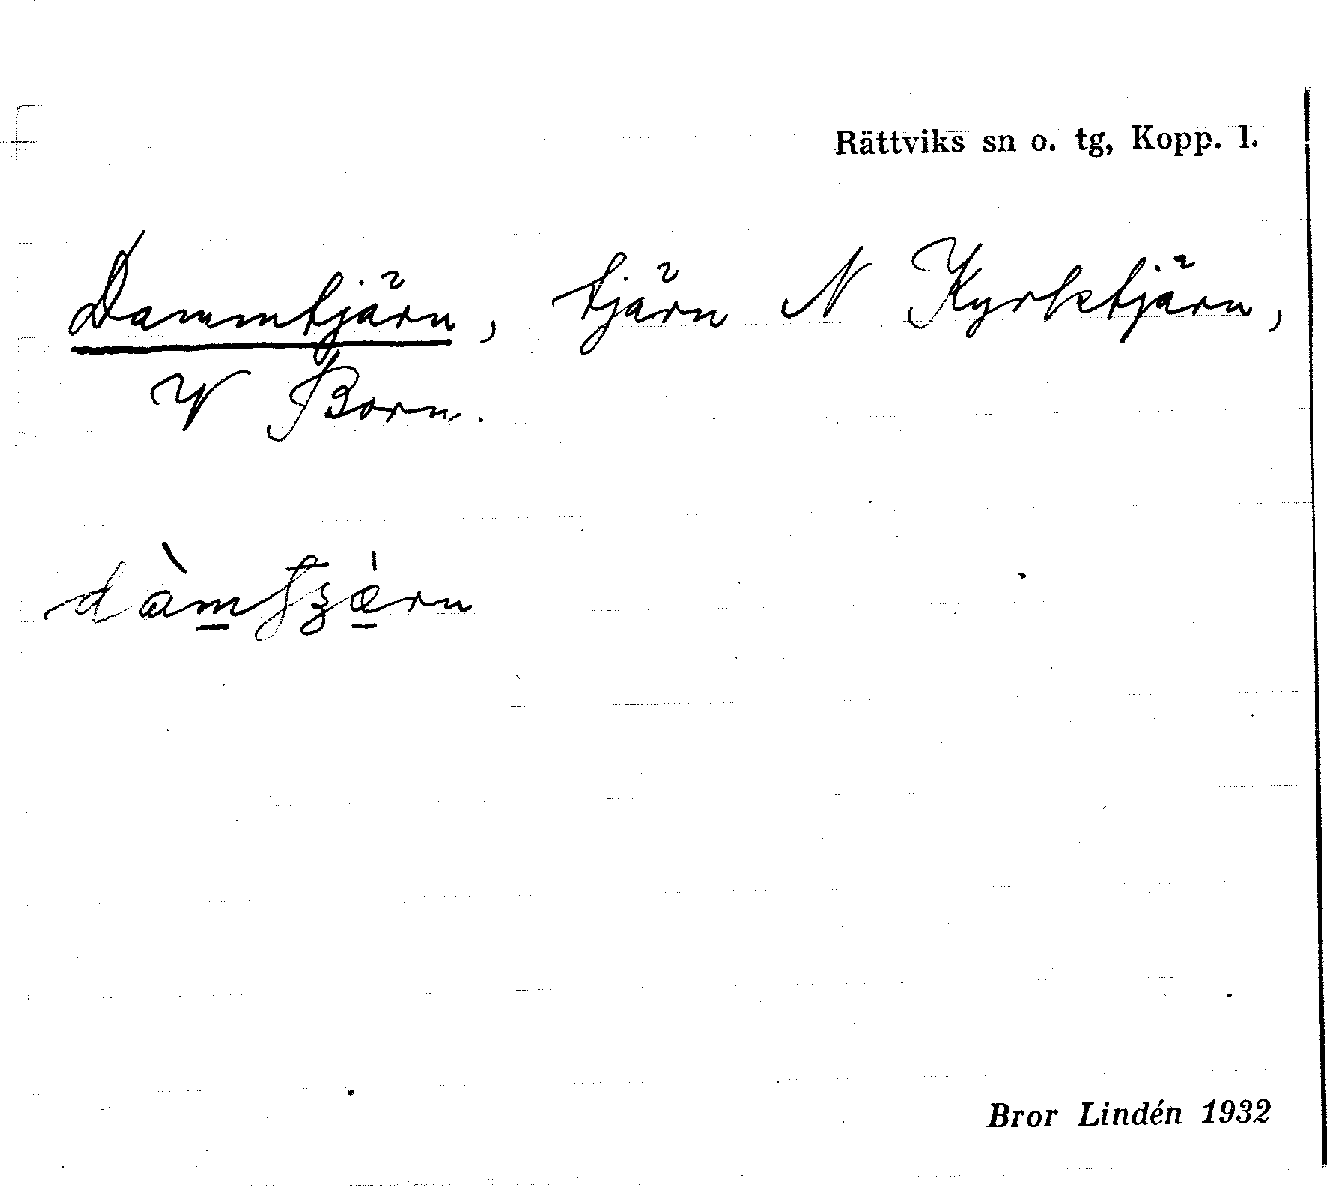 Rättviks sn o. tg, Kopp. l.
Dammtjärn, tjärn N Kyrktjärn,
V Born.
Bror Lindén 1932